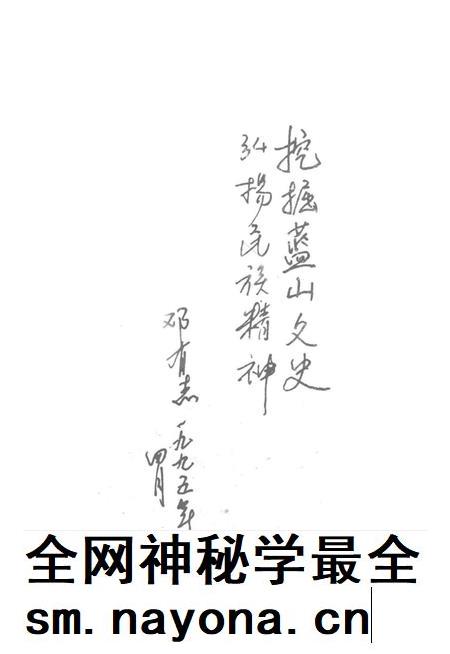 挖掘藍山文史
弘揚民族精神
邓有志
一九九五年
四月
全网神秘学最全
sm.nayona.cn